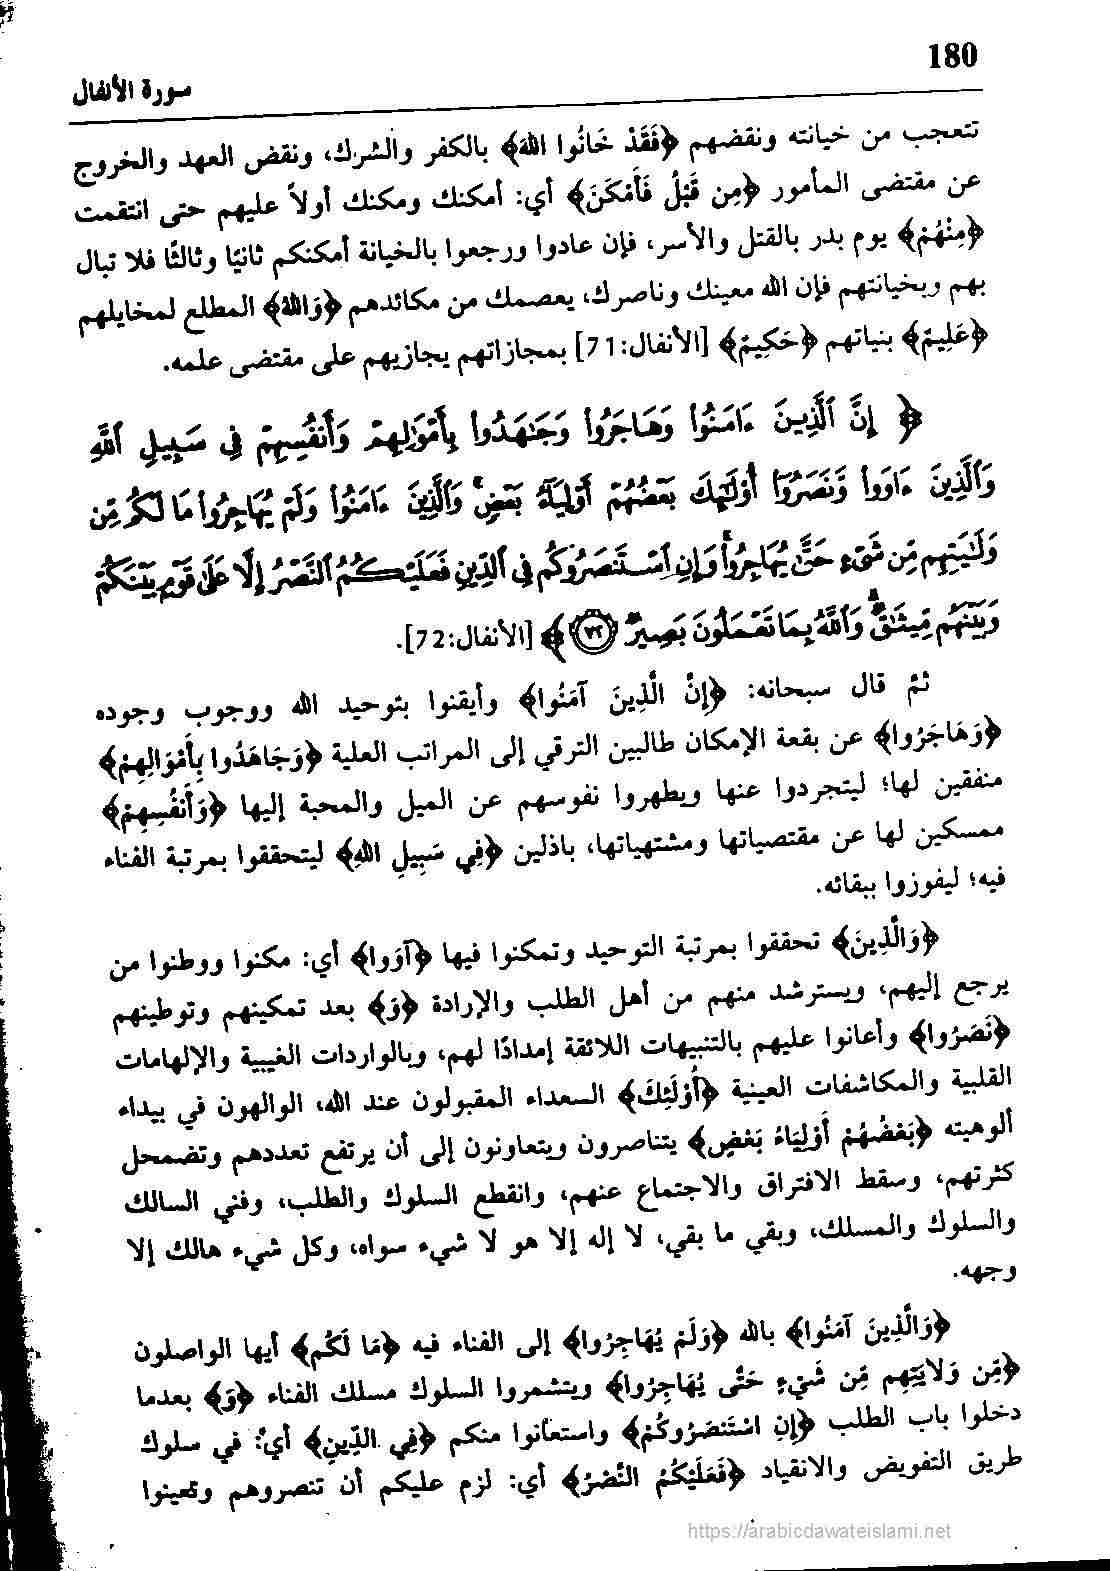 180
سورة الأنفال
تتعجب من خيانته ونقضهم ﴿فَقَدْ خَانُوا اللهَ﴾ بالكفر والشرك، ونقض العهد والخروج
عن مقتضى المأمور ﴿مِن قَبْلُ فَأَمْكَنَ﴾ أي: أمكنك ومكنك أولاً عليهم حتى انتقمت
﴿مِنْهُمْ﴾ يوم بدر بالقتل والأسر، فإن عادوا ورجعوا بالخيانة أمكنكم ثانيًا وثالثًا فلا تبال
بهم وبخيانتهم فإن الله معينك وناصرك، يعصمك من مكائدهم ﴿وَاللهُ﴾ المطلع لمخايلهم
﴿عَلِيمٌ﴾ بنياتهم ﴿حَكِيمٌ﴾ [الأنفال:71] بمجازاتهم يجازيهم على مقتضى علمه.
﴿ إِنَّ ٱلَّذِينَ ءَامَنُوا۟ وَهَاجَرُوا۟ وَجَٰهَدُوا۟ بِأَمْوَٰلِهِمْ وَأَنفُسِهِمْ فِى سَبِيلِ ٱللَّهِ
وَٱلَّذِينَ ءَاوَوا۟ وَّنَصَرُوٓا۟ أُو۟لَٰٓئِكَ بَعْضُهُمْ أَوْلِيَآءُ بَعْضٍ ۚ وَٱلَّذِينَ ءَامَنُوا۟ وَلَمْ يُهَاجِرُوا۟ مَا لَكُم مِّن
وَلَٰيَتِهِم مِّن شَىْءٍ حَتَّىٰ يُهَاجِرُوا۟ ۚ وَإِنِ ٱسْتَنصَرُوكُمْ فِى ٱلدِّينِ فَعَلَيْكُمُ ٱلنَّصْرُ إِلَّا عَلَىٰ قَوْمٍۭ بَيْنَكُمْ
وَبَيْنَهُم مِّيثَٰقٌ ۗ وَٱللَّهُ بِمَا تَعْمَلُونَ بَصِيرٌ ٧٢ ﴾ [الأنفال:72].
ثمَّ قال سبحانه: ﴿إِنَّ الَّذِينَ آمَنُوا﴾ وأيقنوا بتوحيد الله ووجوب وجوده
﴿وَهَاجَرُوا﴾ عن بقعة الإمكان طالبين الترقي إلى المراتب العلية ﴿وَجَاهَدُوا بِأَمْوَالِهِمْ﴾
منفقين لها؛ ليتجردوا عنها ويطهروا نفوسهم عن الميل والمحبة إليها ﴿وَأَنفُسِهِمْ﴾
ممسكين لها عن مقتصياتها ومشتهياتها، باذلين ﴿فِي سَبِيلِ اللهِ﴾ ليتحققوا بمرتبة الفناء
فيه؛ ليفوزوا ببقائه.
﴿وَالَّذِينَ﴾ تحققوا بمرتبة التوحيد وتمكنوا فيها ﴿آوَوا﴾ أي: مكنوا ووطنوا من
يرجع إليهم، ويسترشد منهم من أهل الطلب والإرادة ﴿وَ﴾ بعد تمكينهم وتوطينهم
﴿نَصَرُوا﴾ وأعانوا عليهم بالتنبيهات اللائقة إمدادًا لهم، وبالواردات الغيبية والإلهامات
القلبية والمكاشفات العينية ﴿أُوْلَئِكَ﴾ السعداء المقبولون عند الله، الوالهون في بيداء
ألوهيته ﴿بَعْضُهُمْ أَوْلِيَاءُ بَعْضٍ﴾ يتناصرون ويتعاونون إلى أن يرتفع تعددهم وتضمحل
كثرتهم، وسقط الافتراق والاجتماع عنهم، وانقطع السلوك والطلب، وفني السالك
والسلوك والمسلك، وبقي ما بقي، لا إله إلا هو لا شيء سواه، وكل شيء هالك إلا
وجهه.
﴿وَالَّذِينَ آمَنُوا﴾ بالله ﴿وَلَمْ يُهَاجِرُوا﴾ إلى الفناء فيه ﴿مَا لَكُم﴾ أيها الواصلون
﴿مِّن وَلايَتِهِم مِّن شَيْءٍ حَتَّى يُهَاجِرُوا﴾ ويتشمروا السلوك مسلك الفناء ﴿وَ﴾ بعدما
دخلوا باب الطلب ﴿إِنِ اسْتَنصَرُوكُمْ﴾ واستعانوا منكم ﴿فِي الدِّينِ﴾ أي: في سلوك
طريق التفويض والانقياد ﴿فَعَلَيْكُمُ النَّصْرُ﴾ أي: لزم عليكم أن تنصروهم وتعينوا
https://arabicdawateislami.net